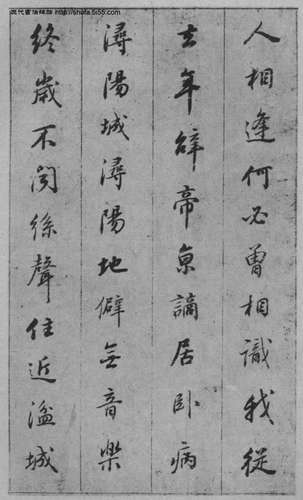 人相逢何必曾相識我從
去年辭帝京謫居卧病
潯陽城潯陽地僻無音樂
終歲不聞絲聲住近湓城